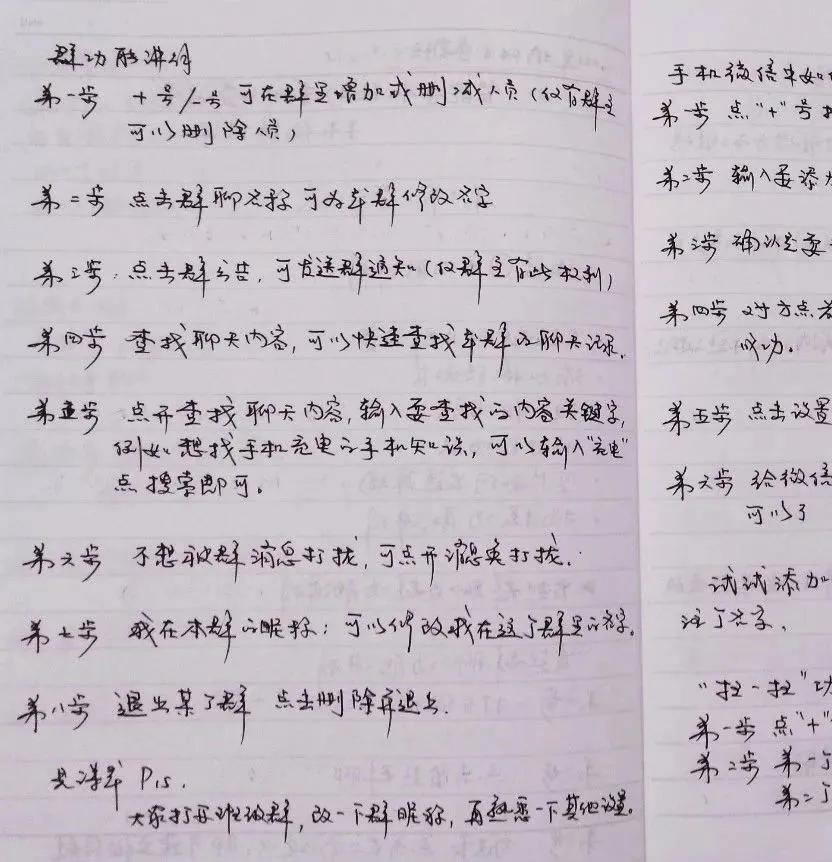 群功能讲解
第一步 十号/一号可在群里增加或删减人员(仅有群主
可以删除人员)
第二步 点击群聊名称可为本群修改名字
第三步:点击群公告,可发送群通知(仅群主有此权利)
第四步 查找聊天内容,可以快速查找本群的聊天记录.
第五步 点开查找聊天内容,输入要查找的内容关键字,
例如想找手机充电的手机知识,可以输入"充电"
点搜索即可。
第六步 不想被群消息打扰,可点开消息免打扰.
第七步 我在本群的昵称:可以修改我在这个群里的名字.
第八步 退出某个群 点击删除并退出.
见课单 P15.
大家打开班级群,改一下群昵称,再熟悉一下其他设置。
手机微信中如何
第一步 点"+"号
第二步 输入要添
第三步 确认是要
第四步 对方点
成功.
第五步 点击设置
第六步 给微信
可以了
试试添加
注个名字.
"扫一扫"功
第一步 点"+"
第二步 第一个
第二个